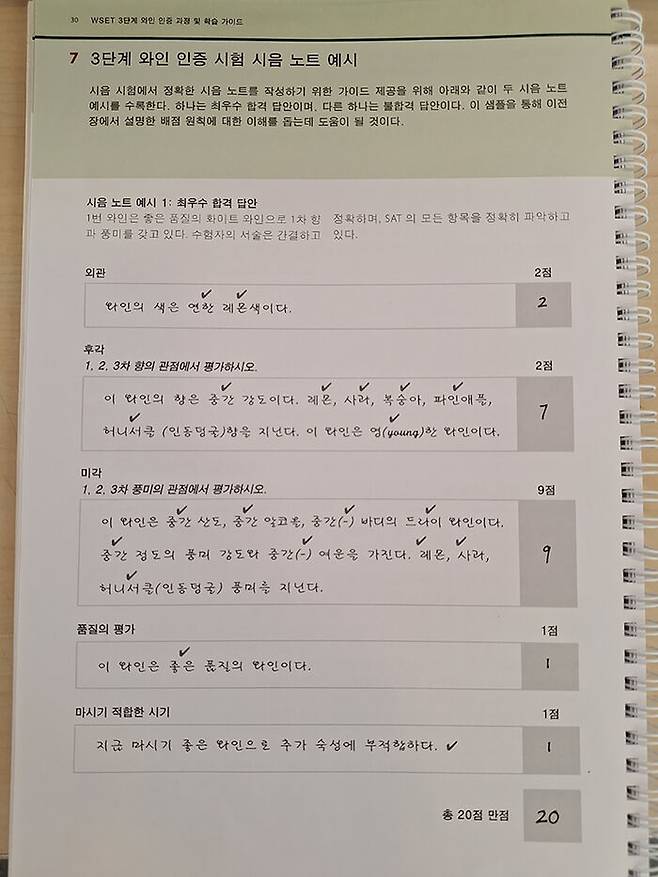 30 WSET 3단계 와인 인증 과정 및 학습 가이드
7 3단계 와인 인증 시험 시음 노트 예시
시음 시험에서 정확한 시음 노트를 작성하기 위한 가이드 제공을 위해 아래와 같이 두 시음 노트
예시를 수록한다. 하나는 최우수 합격 답안이며, 다른 하나는 불합격 답안이다. 이 샘플을 통해 이전
장에서 설명한 배점 원칙에 대한 이해를 돕는데 도움이 될 것이다.
시음 노트 예시 1: 최우수 합격 답안
1번 와인은 좋은 품질의 화이트 와인으로 1차 향
과 풍미를 갖고 있다. 수험자의 서술은 간결하고
정확하며, SAT 의 모든 항목을 정확히 파악하고
있다.
외관 2점
와인의 색은 연한 레몬색이다. 2
후각
1, 2, 3차 향의 관점에서 평가하시오. 2점
이 와인의 향은 중간 강도이다. 레몬, 사과, 복숭아, 파인애플,
허니서클 (인동덩굴)향을 지닌다. 이 와인은 영(young)한 와인이다.
7
미각
1, 2, 3차 풍미의 관점에서 평가하시오. 9점
이 와인은 중간 산도, 중간 알코올, 중간(-) 바디의 드라이 와인이다.
중간 정도의 풍미 강도와 중간(-) 여운을 가진다. 레몬, 사과,
허니서클(인동덩굴) 풍미를 지닌다.
9
품질의 평가 1점
이 와인은 좋은 품질의 와인이다. 1
마시기 적합한 시기 1점
지금 마시기 좋은 와인으로 추가 숙성에 부적합하다. 1
총 20점 만점 20